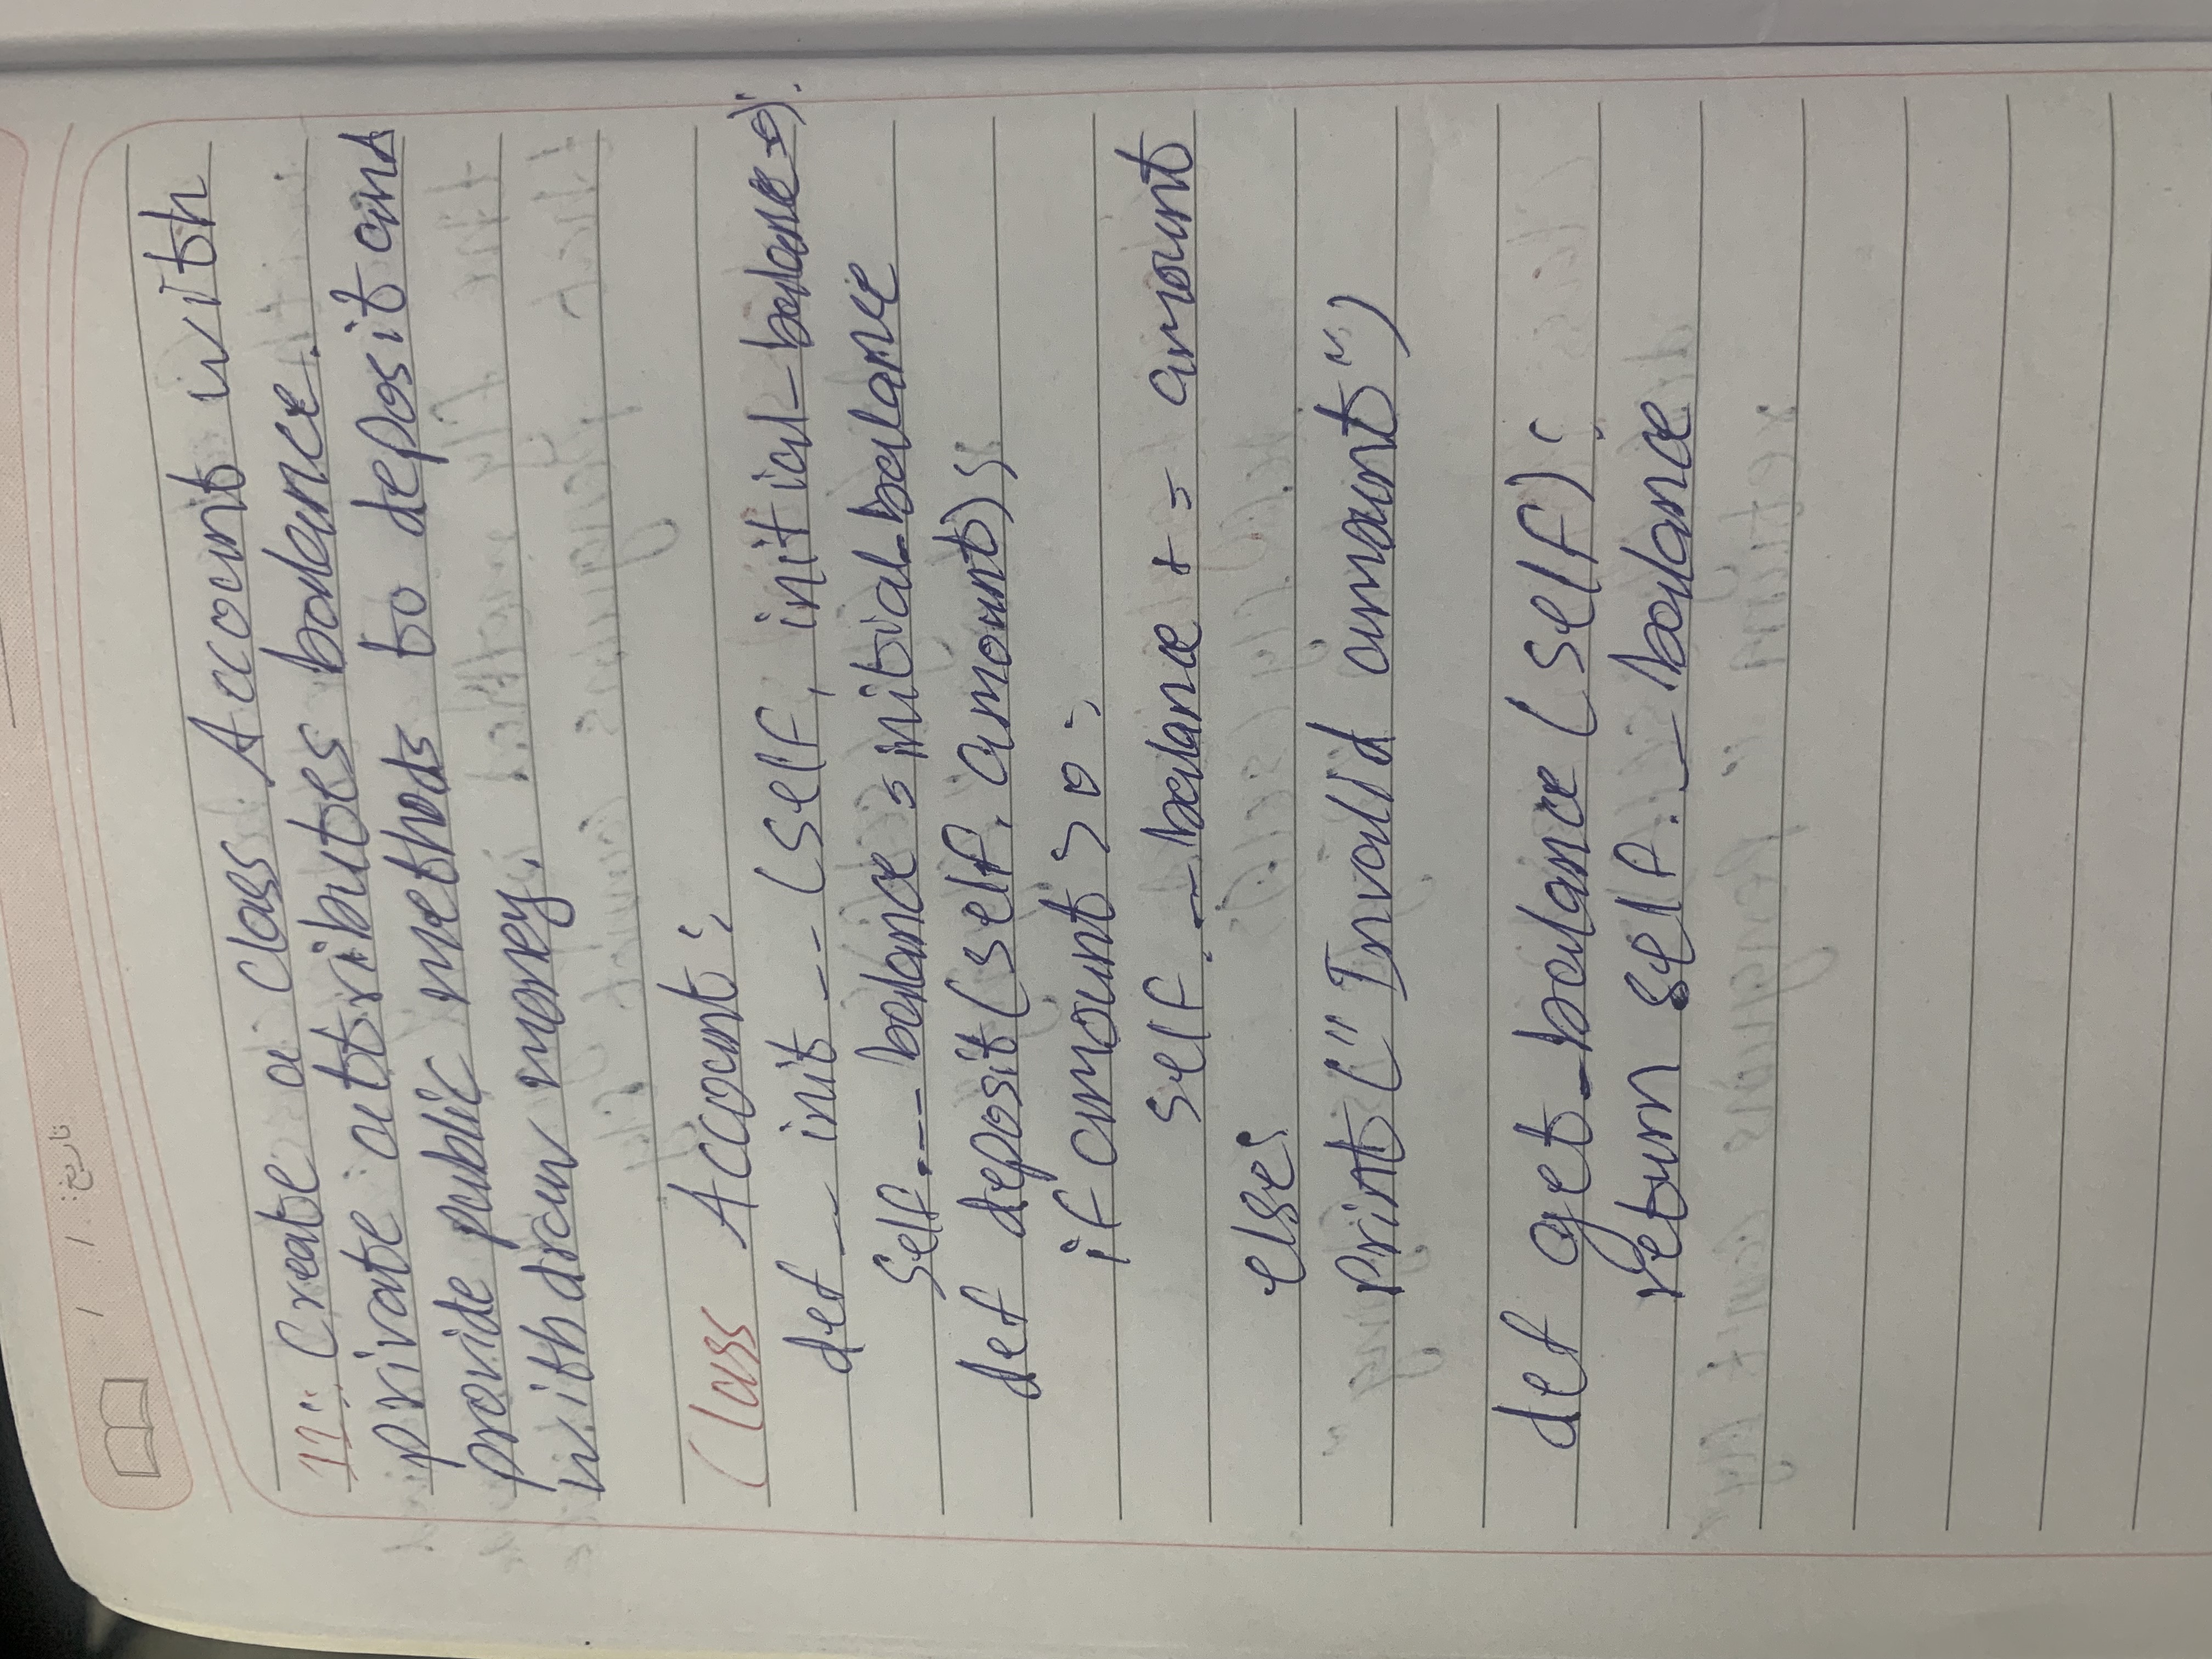 تاریخ: / /
11:: Create a class Account with
private attributes balance.
provide public methods to deposit and
withdraw money.
Class Account:
def __ init __ (self, initial_balance=0):
self.__ balance = initial_balance
def deposit(self, amount):
if amount > 0:
self.__ balance += amount
else:
print("Invalid amount")
def get_balance(self):
return self.__ balance